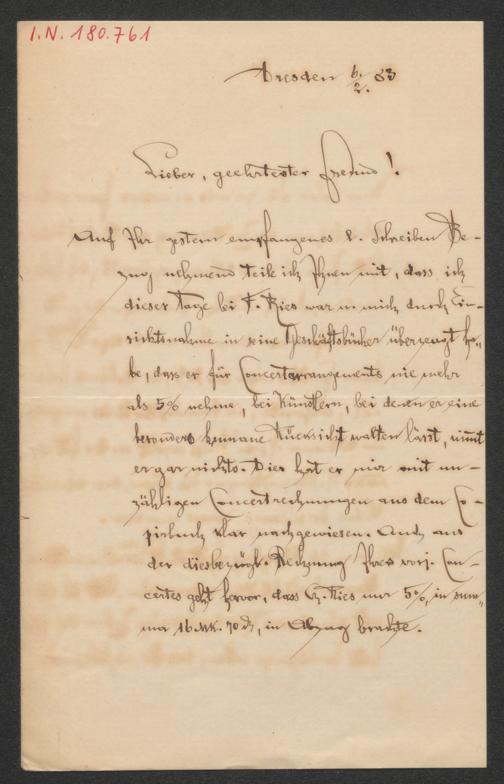 I.N. 180.761
Dresden 6./2. 83
Lieber, geehrtester Freund!
Auf Ihr gestern empfangenes l. Schreiben Be-
zug nehmend teile ich Ihnen mit, dass ich
dieser Tage bei F. Ries war u. mich durch Ein-
sichtsnahme in seine Geschäftsbücher überzeugt ha-
be, dass er für Concertarrangements nie mehr
als 5% nehme, bei Künstlern, bei denen er eine
besonders humane Rücksicht walten lässt, nimmt
er gar nichts. Dies hat er mir mit un-
zähligen Concertrechnungen aus dem Co-
pirbuch klar nachgewiesen. Auch aus
der diesbezügl. Rechnung Ihres vorj. Con-
certes geht hervor, dass H. Ries nur 5%, in sum-
ma 16. Mk. 70 d, in Abzug brachte.